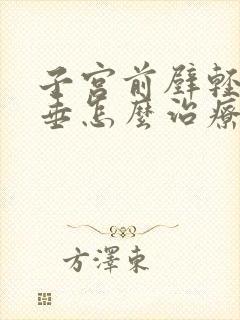 子宫前壁轻
垂怎麼治療
方澤東